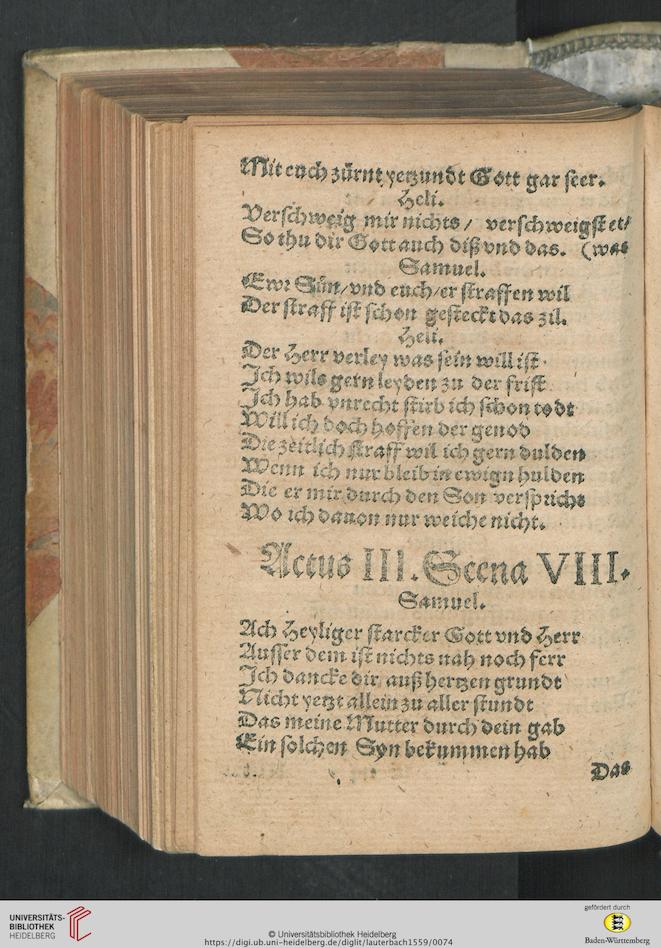 Mit euch zürnt yetzundt Gott gar seer.
Heli.
Verschweig mir nichts / verschweigst et/
So thu dir Gott auch diß vnd das. (was
Samuel.
Ewr Sün/vnd euch/er straffen wil
Der straff ist schon gesteckt das zil.
Heli.
Der Herr verley was sein will ist
Ich wils gern leyden zu der frist
Ich hab vnrecht stirb ich schon todt
Will ich doch hoffen der genod
Die zeitlich straff wil ich gern dulden
Wenn ich nur bleib in ewign hulden
Die er mir durch den Son verspricht
Wo ich dauon nur weiche nicht.
Actus III. Scena VIII.
Samuel.
Ach Heyliger starcker Gott vnd Herr
Ausser dem ist nichts nah noch ferr
Ich dancke dir auß hertzen grundt
Nicht yetzt allein zu aller stundt
Das meine Mutter durch dein gab
Ein solchen Syn bekummen hab
Das
UNIVERSITÄTS-
BIBLIOTHEK
HEIDELBERG
© Universitätsbibliothek Heidelberg
https://digi.ub.uni-heidelberg.de/diglit/lauterbach1559/0074
gefördert durch
Baden-Württemberg